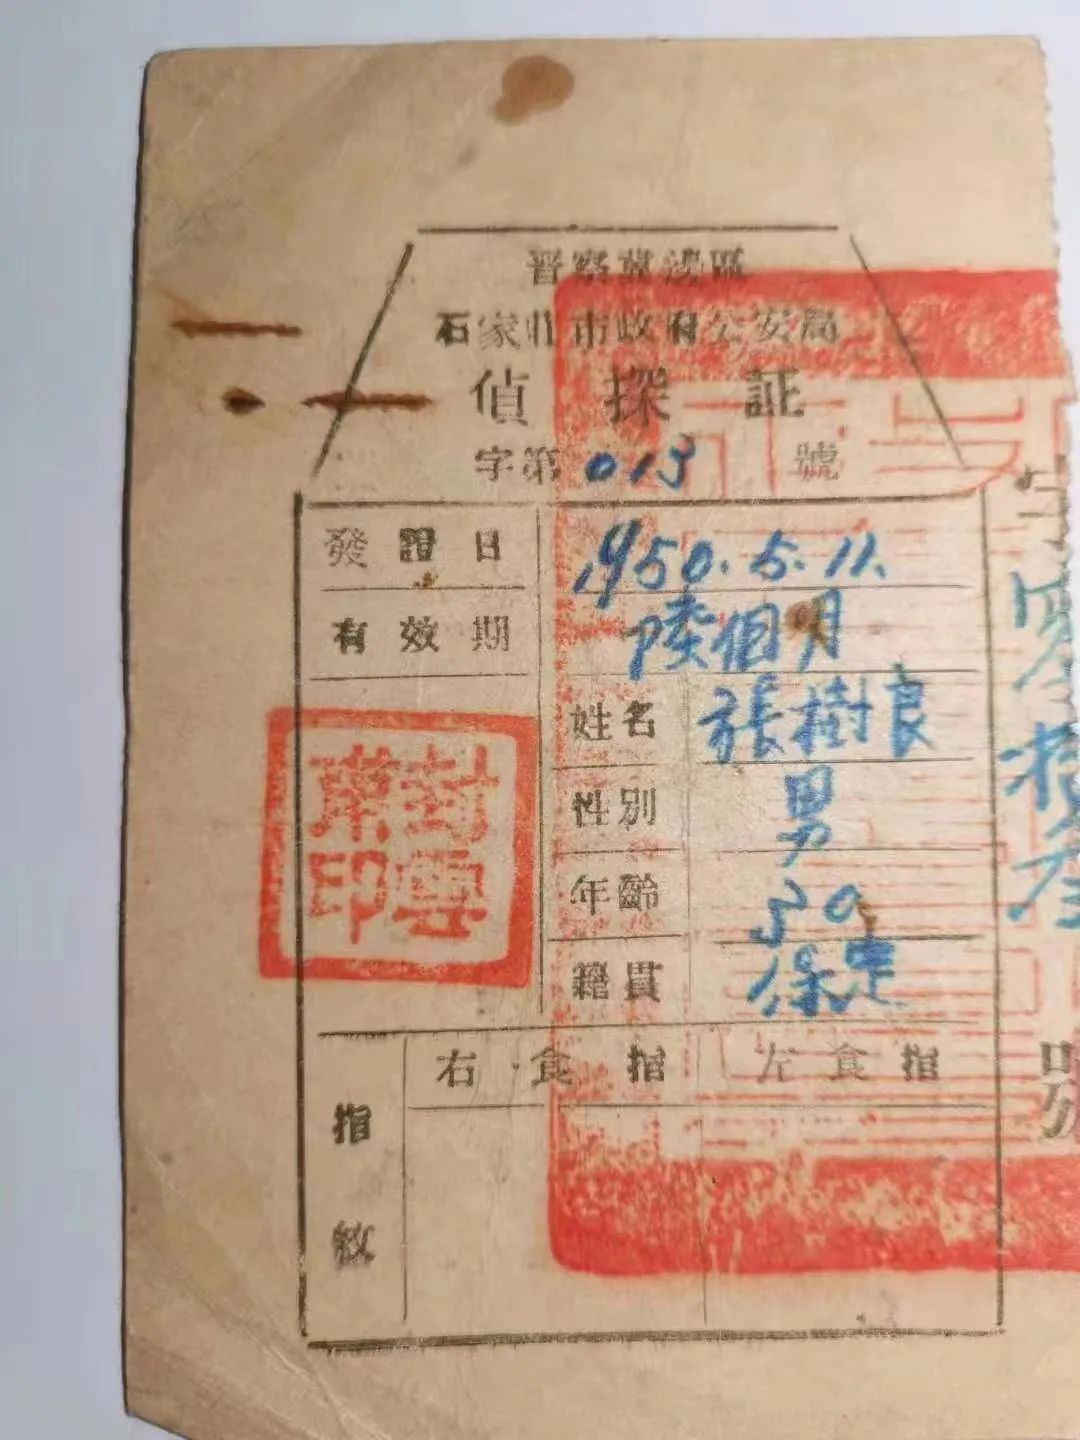 晋察冀边區
石家庄市政府公安局
偵探証
字第013號
發證日 1950.5.11.
有效期 陸個月
姓名 張樹良
性别 男
年齡 50
籍貫 保定
封雲
印
右食指 左食指
指紋
字
號